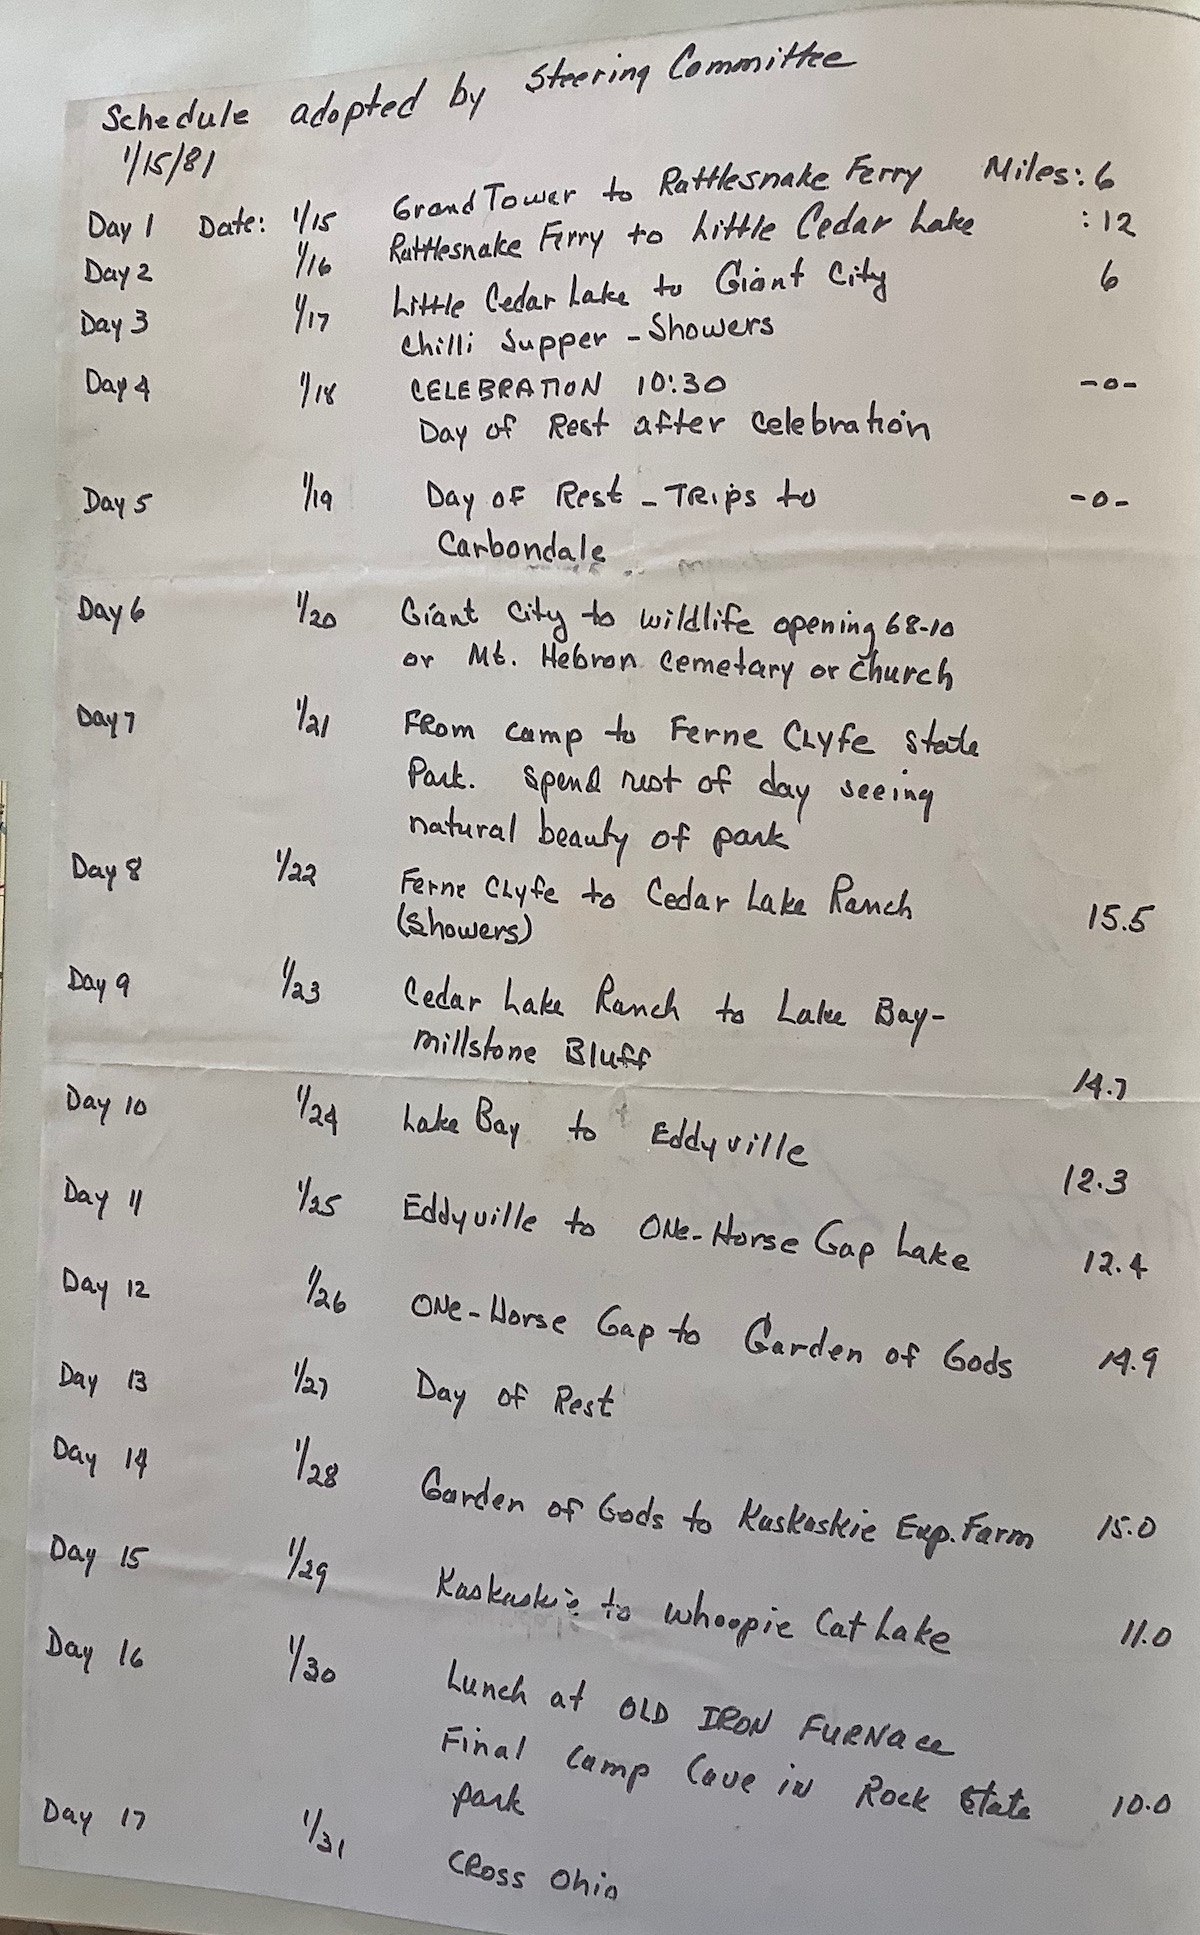 Schedule adopted by Steering Committee
1/15/81
Day 1 Date: 1/15 Grand Tower to Rattlesnake Ferry Miles: 6
Day 2 1/16 Rattlesnake Ferry to Little Cedar Lake : 12
Day 3 1/17 Little Cedar Lake to Giant City 6
Chilli Supper - Showers
Day 4 1/18 CELEBRATION 10:30 -0-
Day of Rest after celebration
Day 5 1/19 Day of Rest - TRips to -0-
Carbondale
Day 6 1/20 Giant City to wildlife opening 68-10
or Mt. Hebron Cemetary or Church
Day 7 1/21 FRom camp to Ferne Clyfe state
Park. Spend rest of day seeing
natural beauty of park
Day 8 1/22 Ferne Clyfe to Cedar Lake Ranch 15.5
(Showers)
Day 9 1/23 Cedar Lake Ranch to Lake Bay-
Millstone Bluff 14.7
Day 10 1/24 Lake Bay to Eddyville 12.3
Day 11 1/25 Eddyville to ONe-Horse Gap Lake 12.4
Day 12 1/26 ONe-Horse Gap to Garden of Gods 14.9
Day 13 1/27 Day of Rest
Day 14 1/28 Garden of Gods to Kaskaskie Exp. Farm 15.0
Day 15 1/29 Kaskaskie to Whoopie Cat Lake 11.0
Day 16 1/30 Lunch at OLD IRON FURNace
Final Camp Cave iN Rock State 10.0
park
Day 17 1/31 CRoss Ohio